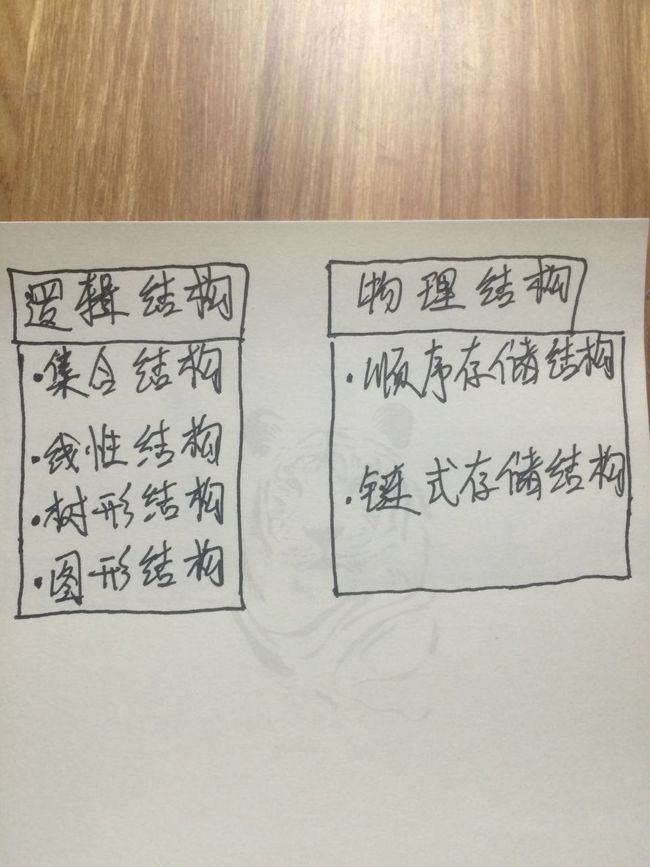 逻辑结构
·集合结构
·线性结构
·树形结构
·图形结构
物理结构
·顺序存储结构
·链式存储结构